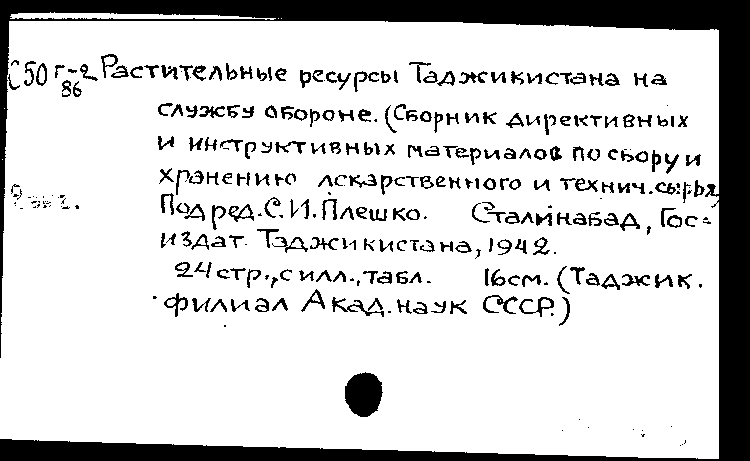 С50 г-2 Растительные ресурсы Таджикистана на
86
службу обороне. (Сборник директивных
и инструктивных материалов по сбору и
хранению лекарственного и технич. сырья)
2 экз. Под ред. С.И. Плешко. Сталинабад, Гос-
издат Таджикистана, 1942.
24 стр., с илл., табл. 16 см. (Таджик.
филиал Акад. наук СССР.)